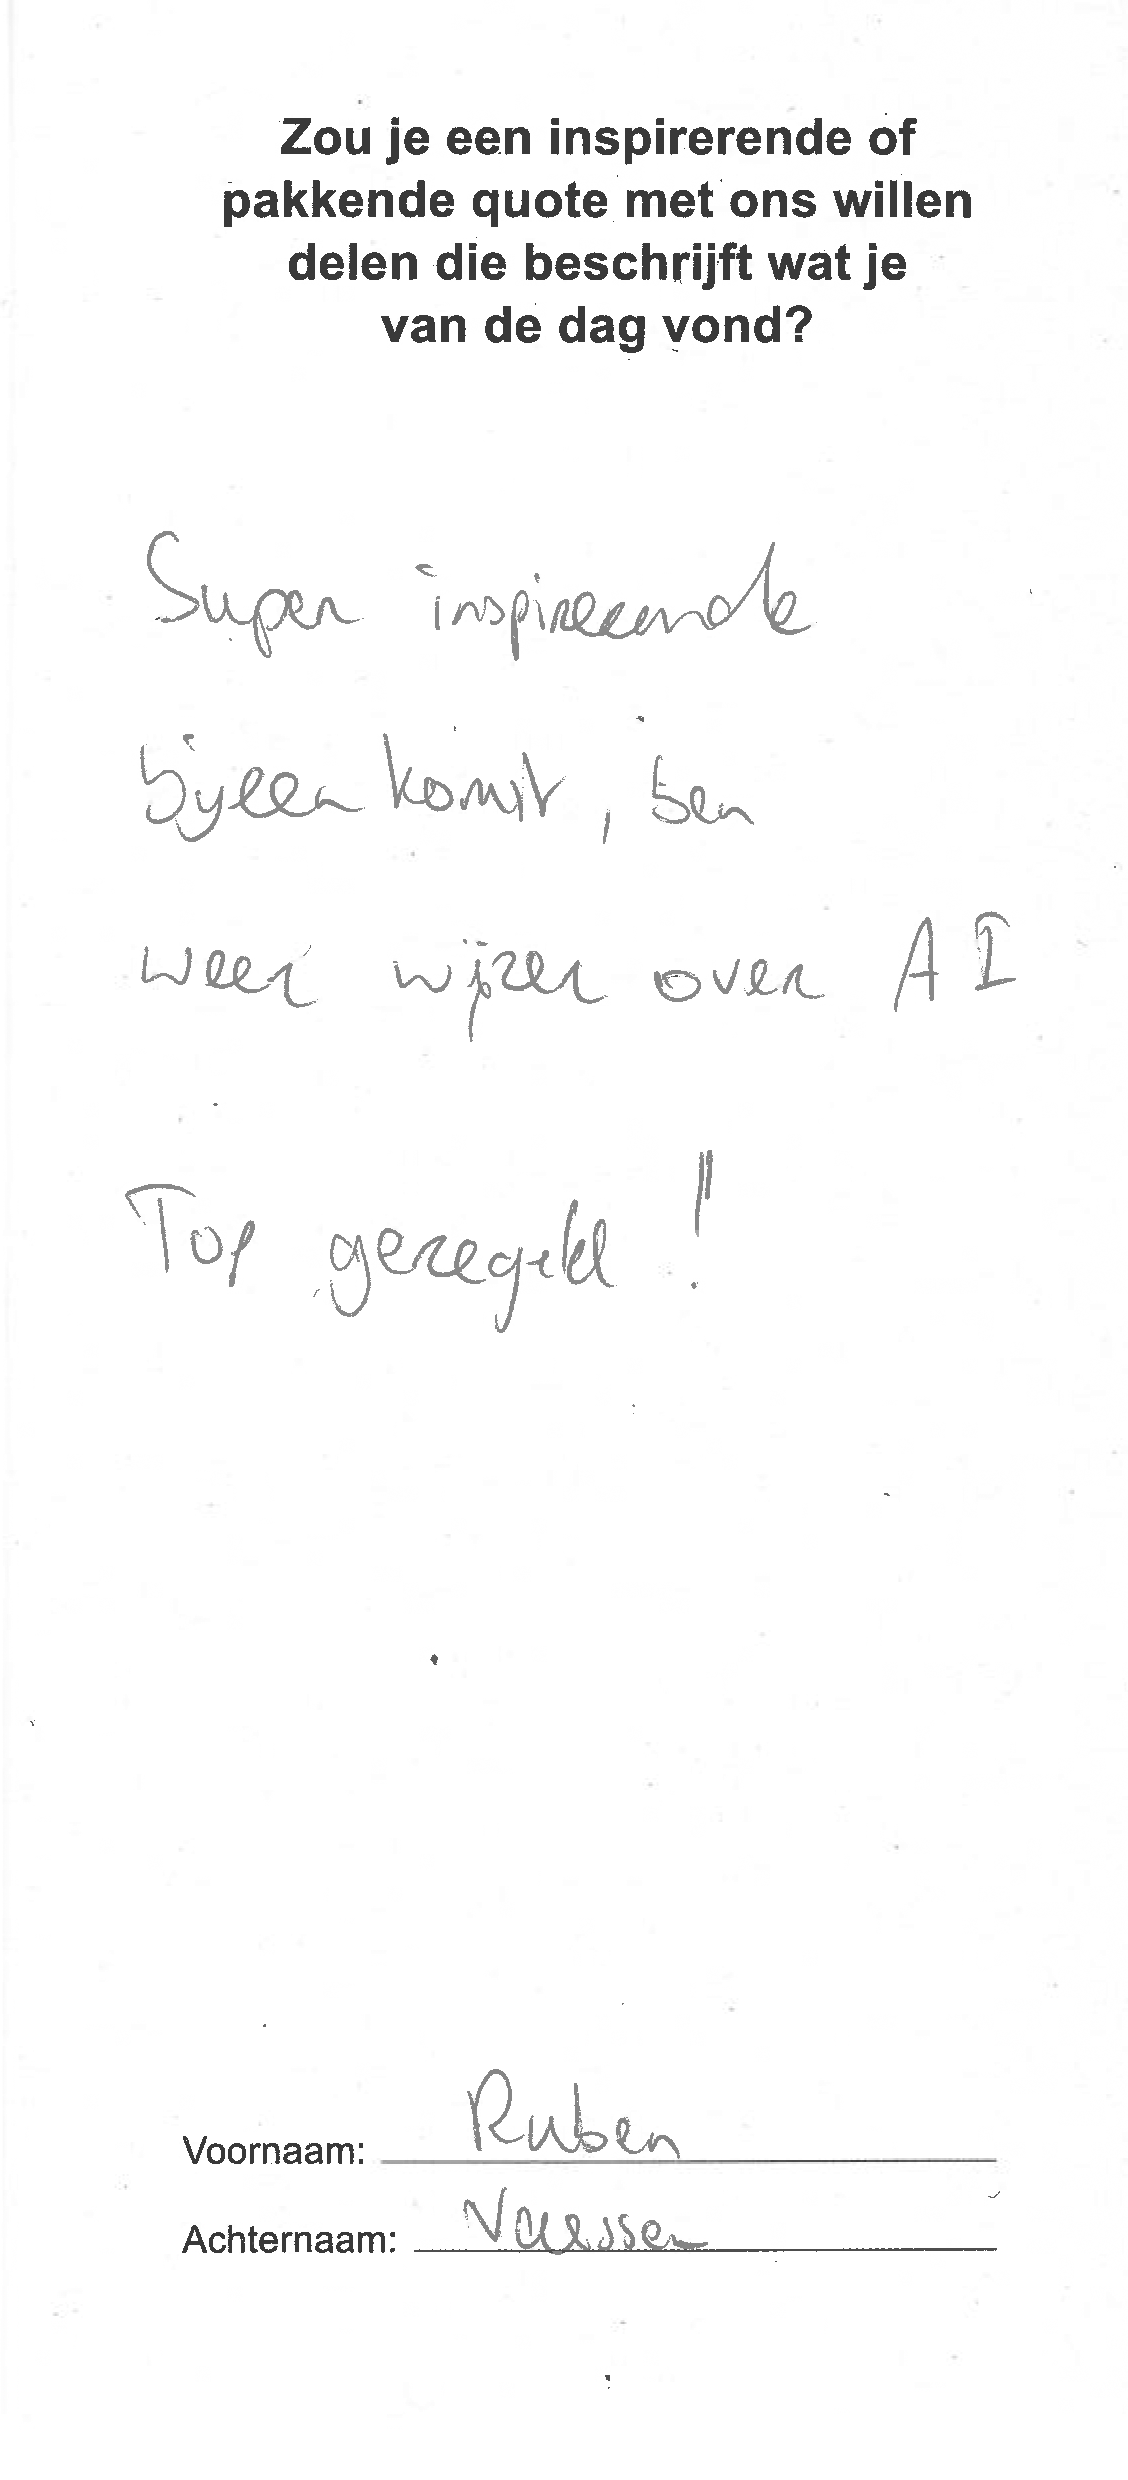 Zou je een inspirerende of
pakkende quote met ons willen
delen die beschrijft wat je
van de dag vond?
Super inspirerende
bijeenkomst, ben
weer wijzer over AI
Top geregeld!
Voornaam: Ruben
Achternaam: Vaessen